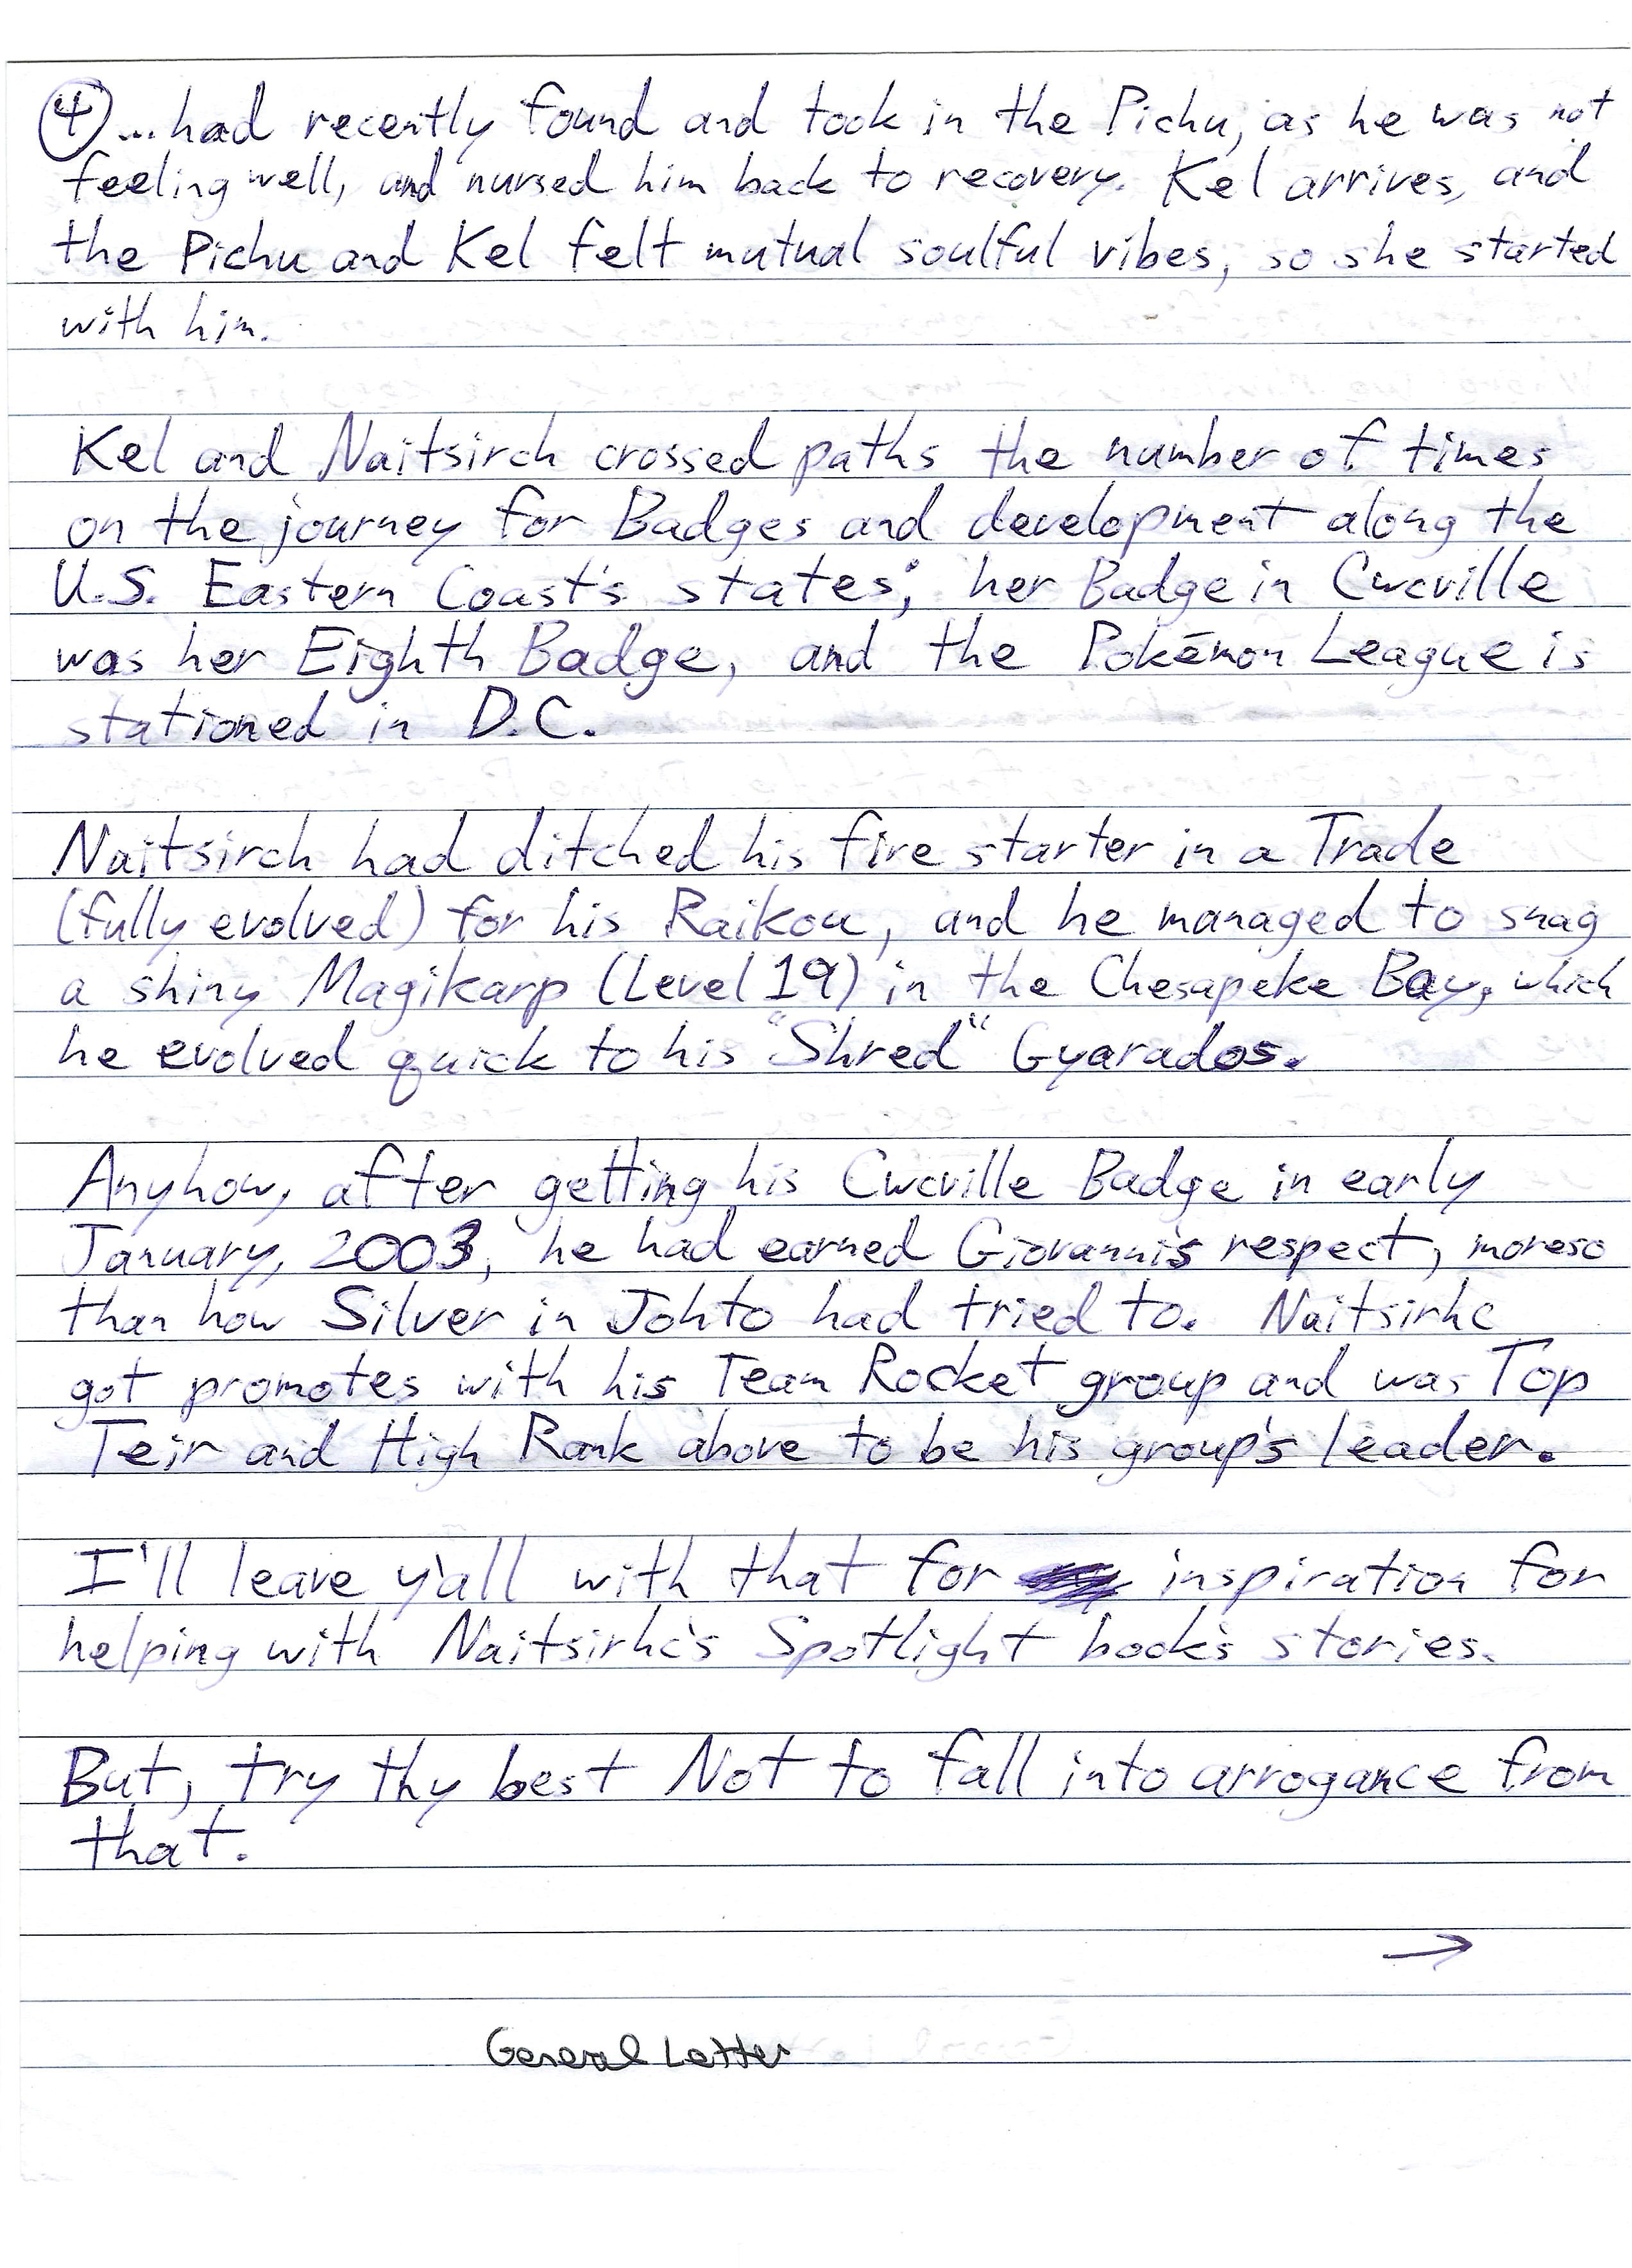 ④ ...had recently found and took in the Pichu, as he was not
feeling well, and nursed him back to recovery. Kel arrives, and
the Pichu and Kel felt mutual soulful vibes, so she started
with him.
Kel and Naitsirch crossed paths the number of times
on the journey for Badges and development along the
U.S. Eastern Coast's states; her Badge in Cwcville
was her Eighth Badge, and the Pokémon League is
stationed in D.C.
Naitsirch had ditched his fire starter in a Trade
(fully evolved) for his Raikou, and he managed to snag
a shiny Magikarp (Level 19) in the Chesapeke Bay, which
he evolved quick to his "Shred" Gyarados.
Anyhow, after getting his Cwcville Badge in early
January, 2003, he had earned Giovanni's respect, moreso
than how Silver in Johto had tried to. Naitsirhc
got promotes with his Team Rocket group and was Top
Teir and High Rank above to be his group's leader.
I'll leave y'all with that for inspiration for
helping with Naitsirhc's Spotlight book's stories.
But, try thy best Not to fall into arrogance from
that.
→
General Letter